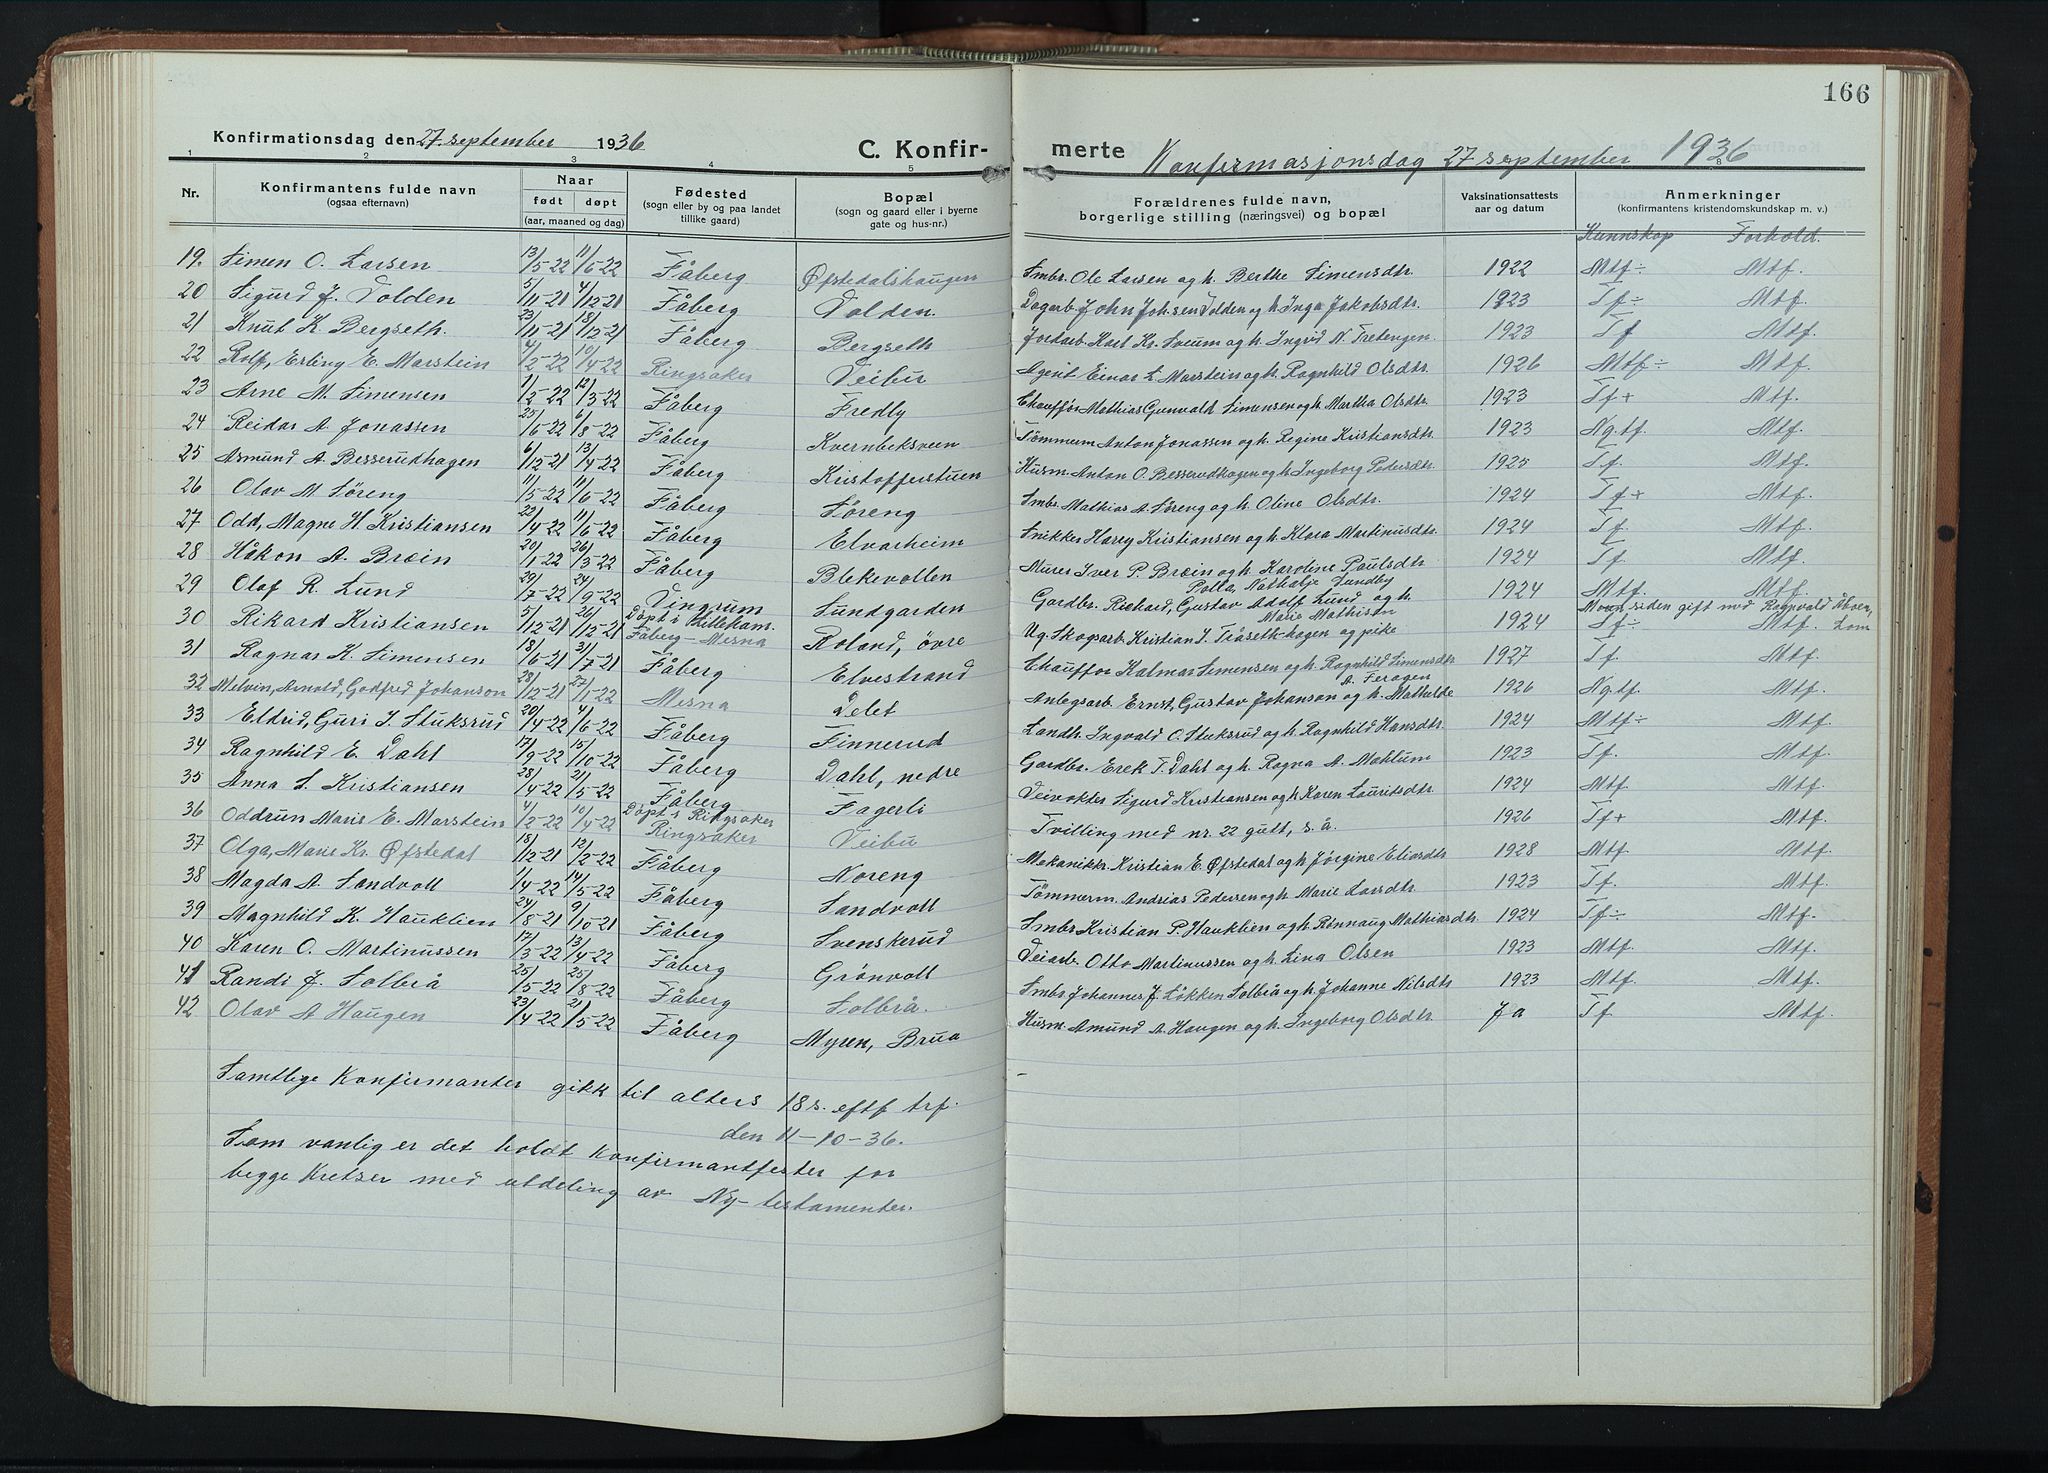 166
Konfirmationsdag den 27. september 1936
C. Konfir-
merte Konfirmasjonsdag 27 september 1936
1 2 3 4 5 8
Nr. Konfirmantens fulde navn (ogsaa efternavn) Naar født døpt (aar, maaned og dag) Fødested (sogn eller by og paa landet tillike gaard) Bopæl (sogn og gaard eller i byerne gate og hus-nr.) Forældrenes fulde navn, borgerlige stilling (næringsvei) og bopæl Vaksinationsattests aar og datum Anmerkninger (konfirmantens kristendomskundskap m. v.)
Kunnskap Forhold.
19. Simen O. Larsen 13/5-22 11/6-22 Fåberg Øfstedalshaugen Smbr. Ole Larsen og h. Berthe Simensdtr. 1922 Mtf÷ Mtf.
20 Sigurd J. Dolden 5/11-21 4/12-21 Fåberg Dolden. Dagarb. John Johsen Dolden og h. Inga Jakobsdtr. 1923 Tf÷ Mtf.
21 Knut K. Bergseth. 23/11-21 18/12-21 Fåberg Bergseth Jordarb. Karl Kr. Sveum og h. Ingrid N. Tretengen. 1923 Tf Mtf.
22 Rolf, Erling E. Marstein 4/2-22 10/4-22 Ringsaker Veibu Agent Einar L. Marstein og h. Ragnhild Olsdtr. 1926 Mtf÷ Mtf.
23 Arne M. Simensen 1/2-22 12/3-22 Fåberg Fredly Chauffør Mathias Gunvald Simensen og h. Martha Olsdtr. 1923 Tf+ Mtf.
24 Reidar A. Jonassen 25/6-22 6/8-22 Fåberg Kvernbeksveen Tömmerm Anton Jonassen og h. Regine Kristiansdtr. 1923 Ng.tf. Mtf.
25 Asmund A. Besserudhagen 6/12-21 13/4-22 Fåberg Kristofferstuen Husm. Anton O. Besserudhagen og h. Ingeborg Pedersdtr. 1925 Tf. Mtf.
26 Olav M. Søreng 11/5-22 10/6-22 Fåberg Søreng Smbr. Mathias A. Søreng og h. Oline Olsdtr. 1924 Tf+ Mtf.
27 Odd, Magne H. Kristiansen 22/4-22 11/6-22 Fåberg Elvarheim Snikker Harry Kristiansen og h. Klara Martinusdtr. 1924 Tf. Mtf.
28 Håkon A. Brein 20/1-22 26/3-22 Fåberg Blekevollen Murer Iver P. Brein og h. Karoline Paulsdtr 1924 Tf. Mtf.
29 Olaf R. Lund 29/7-22 24/9-22 Vingrum Lundgarden Gardbr. Richard, Gustav Adolf Lund og h. Polla, Nathalje Lundby 1924 Mtf. Mtf.
30 Rikard Kristiansen 5/12-21 26/12-21 Døpt i Lilleham. Fåberg - Mesna Roland, övre Ug. Skogsarb. Kristian J. Tråseth-hagen og pike Marie Mathisen 1924 Tf÷ Mtf. Moren siden gift med Ragnvald Åboen, Lom
31 Ragnar K. Simensen 18/6-21 31/7-21 Fåberg Elvestrand Chauffør Kalmar Simensen og h. Ragnhild Simensdtr 1927 Tf. Mtf.
32 Melvin, Arnold, Godfred Johanson 28/12-21 22/1-22 Mesna Delet Anlegsarb. Ernst, Gustav Johanson og h. Mathilde A. Feragen 1926 Ng.tf. Mtf.
33 Eldrid, Guri I. Stuksrud 20/4-22 4/6-22 Fåberg Finnerud Landh. Ingvald O. Stuksrud og h. Ragnhild Hansdtr. 1924 Mtf÷ Mtf.
34 Ragnhild E. Dahl 17/9-22 15/10-22 Fåberg Dahl, nedre Gardbr. Erek T. Dahl og h. Ragna A. Mæhlum 1923 Tf. Mtf.
35 Anna S. Kristiansen 28/4-22 21/5-22 Fåberg Fagerli Veivokter Sigurd Kristiansen og h. Karen Lauritsdtr. 1924 Mtf. Mtf.
36 Oddrun Marie E. Marstein 4/2-22 10/4-22 Døpt i Ringsaker Ringsaker Veibu Tvilling med nr. 22 gutt, s.å. 1926 Tf+ Mtf.
37 Olga, Marie Kr. Øfstedal 18/12-21 12/2-22 Fåberg Noreng Mekanikkr. Kristian E. Øfstedal og h. Jörgine Eliasdtr 1928 Mtf. Mtf.
38 Magda A. Sandvoll 1/4-22 14/5-22 Fåberg Sandvoll Tömmerm. Andrias Pedersen og h. Marie Larsdtr. 1923 Tf. Mtf.
39 Magnhild K. Hauklien 24/8-21 9/10-21 Fåberg Svenskerud Smbr Kristian P. Hauklien og h. Rönnaug Mathiasdtr. 1924 Tf÷ Mtf.
40 Karen O. Martinussen 17/3-22 13/4-22 Fåberg Grönvoll Veiarb. Otto Martinussen og h. Lina Olsen 1923 Mtf. Mtf.
41 Randi J. Solbrå 25/5-22 25/8-22 Fåberg Solbrå. Smbr Johannes J. Løkken Solbrå og h. Johanne Nilsdtr 1923 Mtf. Mtf.
42 Olav A Haugen 23/4-22 21/5-22 Fåberg Myren, Brua Husm. Amund A. Haugen og h. Ingeborg Olsdtr. Ja Tf Mtf.
Samtlige Konfirmanter gikk til alters 18 s. eftf trf.
den 11-10-36.
Som vanlig er det holdt Konfirmantfester for
begge Kretser med utdeling av Ny-testamenter.